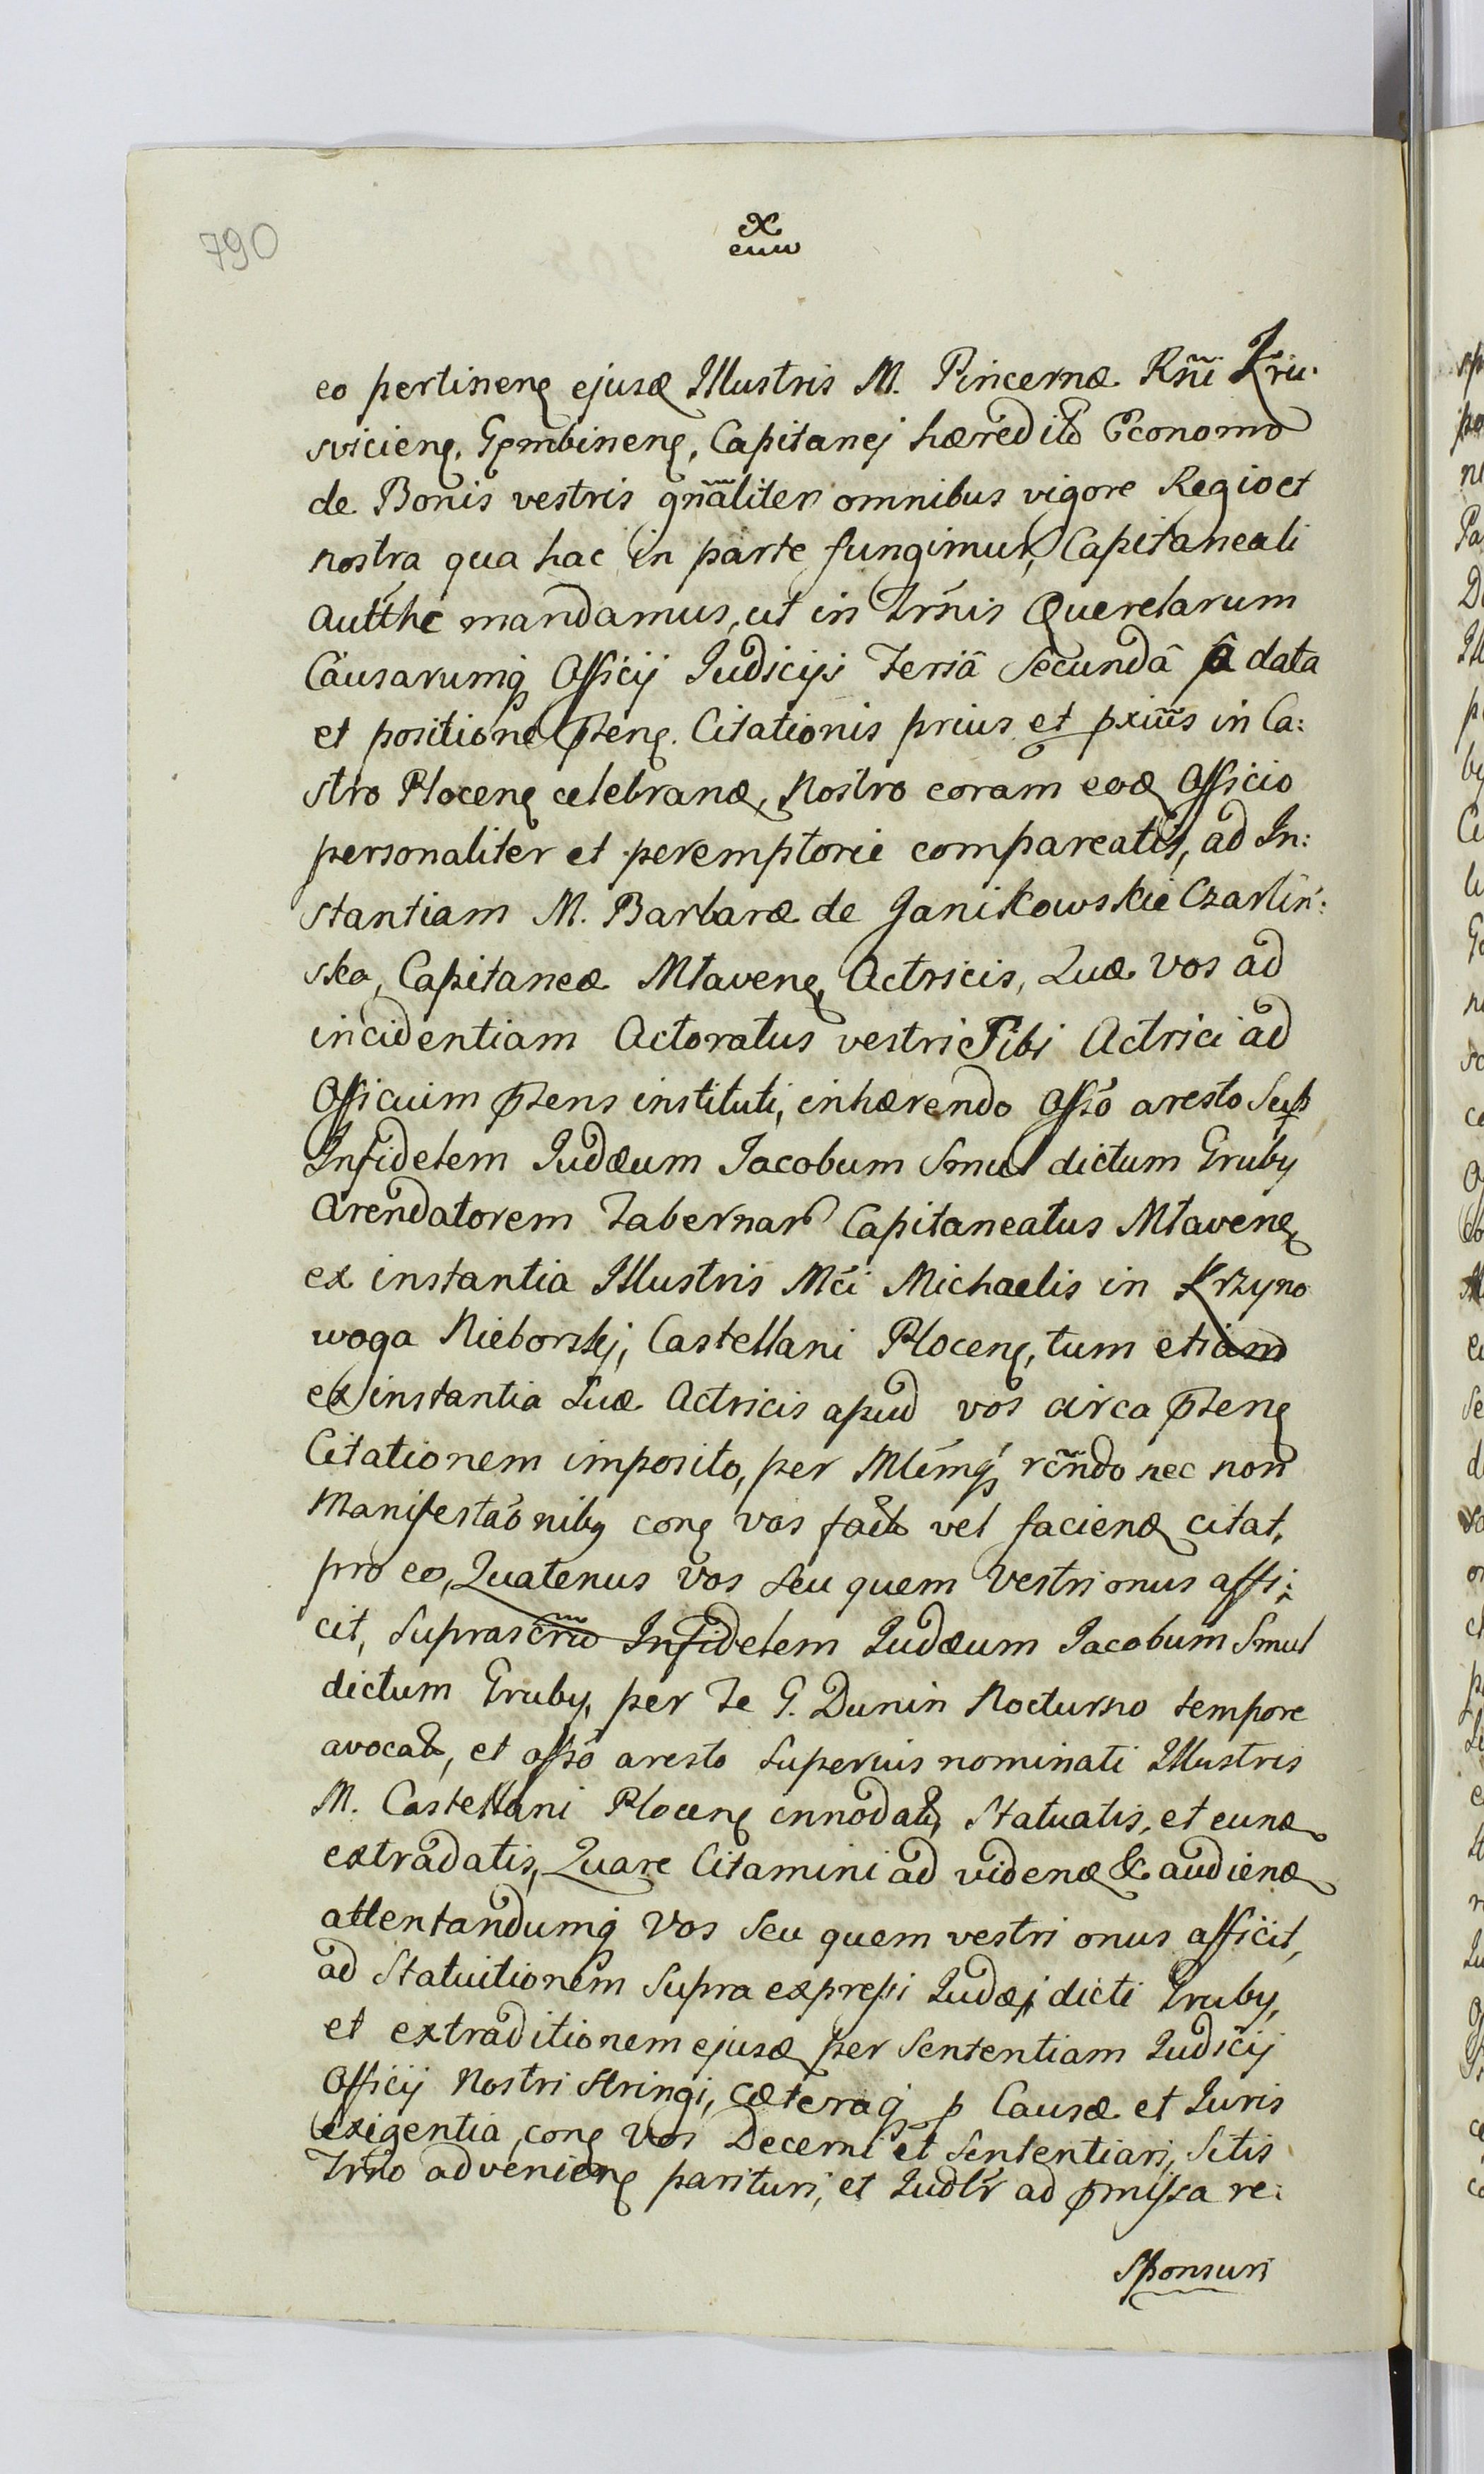 790
eo pertinenς ejusꝺ Illustris M. Pincernæ Rñi
sviciens. Gembinens, Capitanej hæredit Economo
de Bonis vestris gñaliter omnibus vigore Regio et
nostra qua hac in parte fungimur, Capitaneali
Autthe mandamus, ut in Trñis Querelarum
Causarumq Officij Judicijs Feriâ Secundâ â data
et positione pñtens. Citationis prius et pxiũs in Ca:
stro Plocens celebrand, Nostro coram eod Officio
personaliter et peremptorie compareatis, ad In:
stantiam M. Barbaræ de Janikowskie Czarliń:
ska, Capitaneæ Mlavens, Actricis, Quæ vos ad
incidentiam Actoratus vestri Sibi Actrici ad
Officium pñtens instituti, inhærendo Offõ aresto Sup
Infidelem Judæum Jacobum Smul dictum Gruby
Arendatorem Tabernar Capitaneatus Mlavens
ex instantia Illustris Mći Michaelis in Krzyno
woga Nieborskj, Castellani Plocens, tum etiam
ex instantia Suæ Actricis apud vos circa pñtens
Citationem imposito, per Mlémq rẽndo nec non
Manifestaõnibq cons vos fact vel faciend citat,
pro eo, Quatenus Vos seu quem Vestri onus affi:
cit, Suprascrño Infidelem Judæum Jacobum Smul
dictum Gruby, per Te G. Dunin Nocturno tempore
avocat, et offõ aresto Superius nominati Illustris
M. Castellani Plocens innodat, Statuatis, et eund
extradatis, Quare Citamini ad vidend & audiend
attentandumq Vos Seu quem vestri onus afficit,
ad Statuitionem Supra expressi Judæj dicti Gruby,
et extraditionem ejusd per Sententiam Judicij
Officij Nostri Stringi, Cæteraq p Causæ et Juris
exigentia, cons Vos Decerni et Sententiari, Sitis
Trño advenienς parituri, et Judlr ad pmissa re:
sponsuri